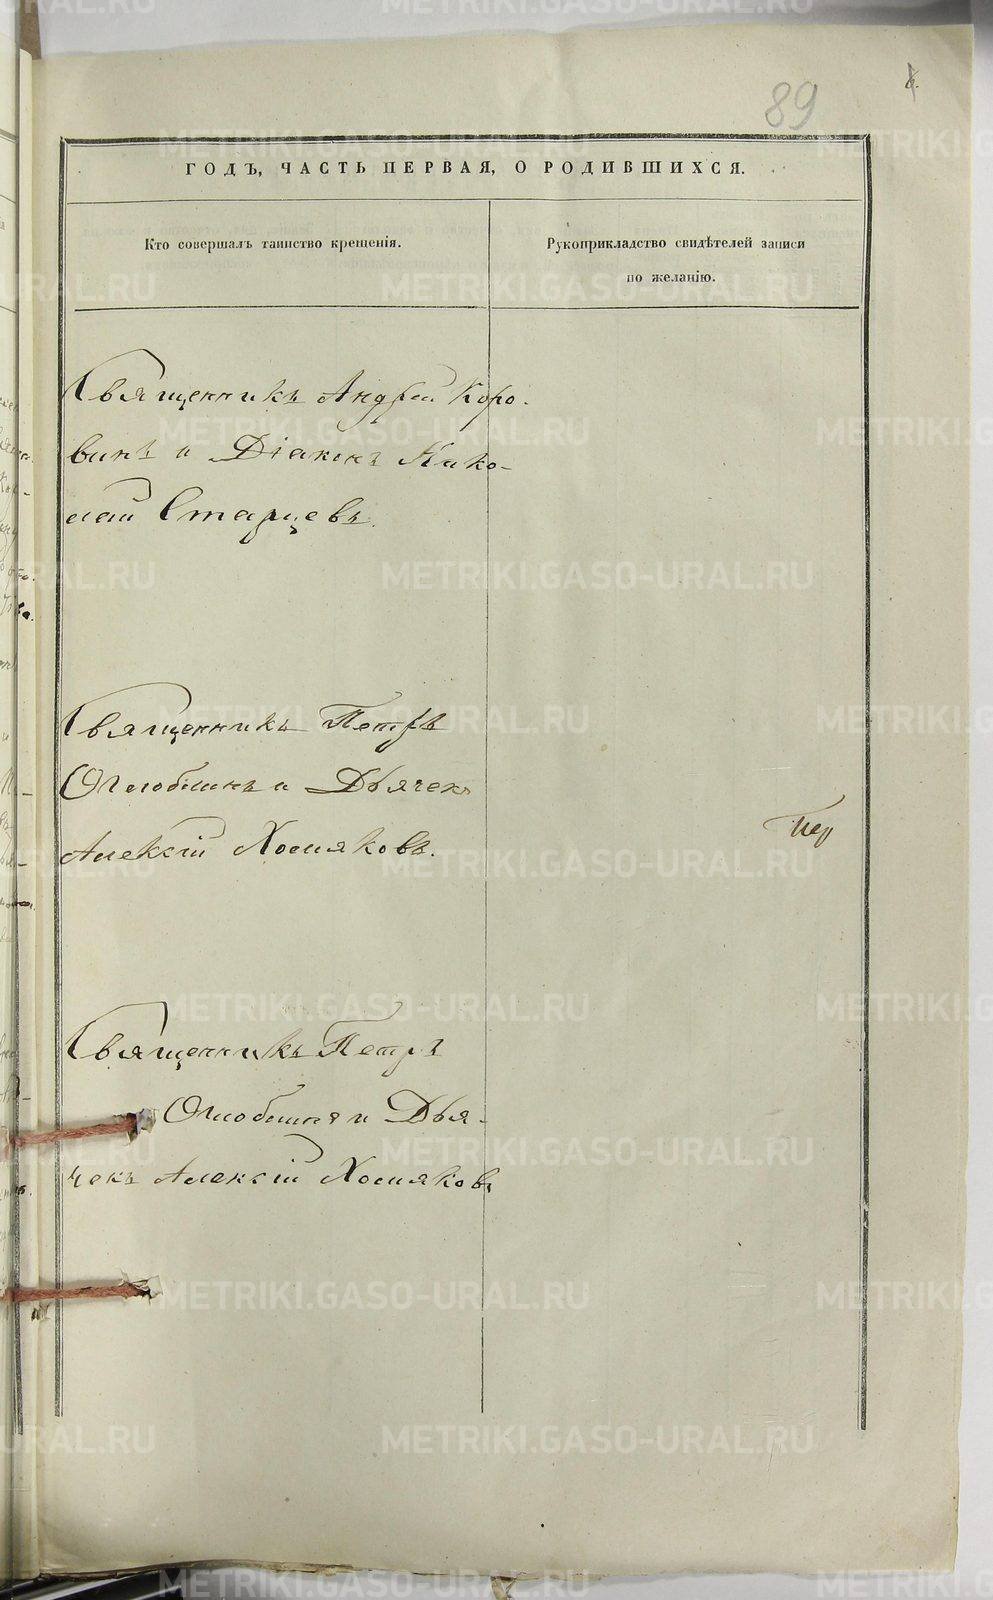 89
ГОДЪ, ЧАСТЬ ПЕРВАЯ, О РОДИВШИХСЯ.
Кто совершалъ таинство крещенія.
Рукоприкладство свидѣтелей записи
по желанію.
Священникъ Андрей Коро-
винъ и Діаконъ Нико-
лай Старцевъ.
Священникъ Петръ
Оглоблинъ и Дьячекъ
Алексій Хомяковъ.
Пер
Священникъ Петръ
Оглоблинъ и Дья-
чекъ Алексій Хомяковъ
METRIKI.GASO-URAL.RU